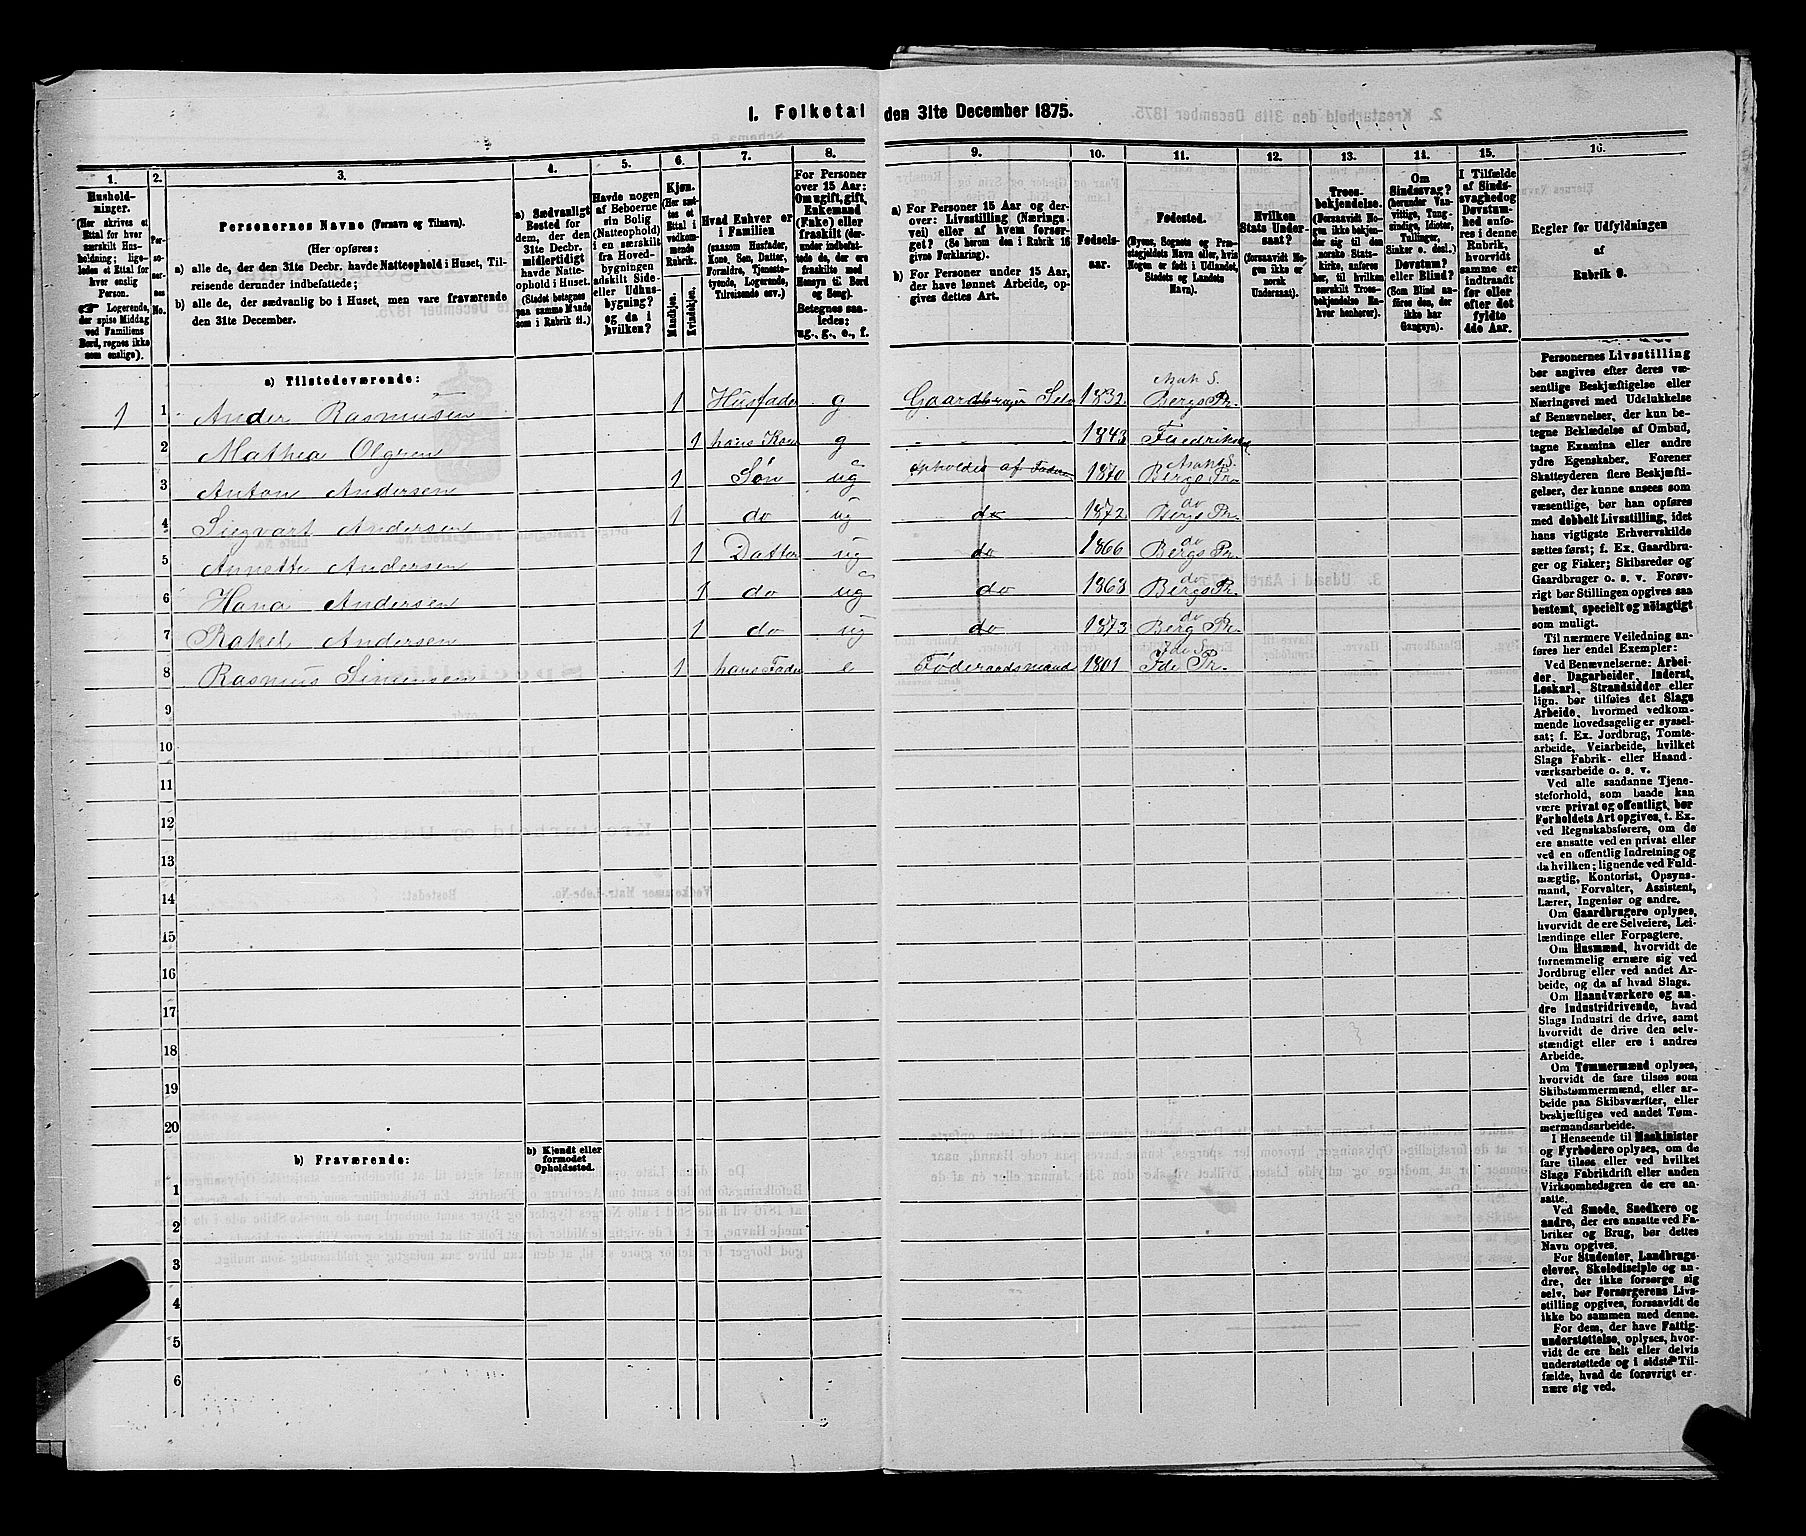 1. Folketal den 31te December 1875.
1. 2. 3. 4. 5. 6. 7. 8. 9. 10. 11. 12. 13. 14. 15. 16.
Husholdninger.
(Her skrives et
Ettal for hver
særskilt Hus-
holdning; lige-
ledes et Ettal for
hver enslig
Person.
☞ Logerende,
der spise Middag
ved Familiens
Bord, regnes ikke
som enslige).
Personernes No.
Personernes Navne (Fornavn og Tilnavn).
(Her opføres:
a) alle de, der den 31te Decbr. havde Natteophold i Huset, Til-
reisende derunder indbefattede;
b) alle de, der sædvanlig bo i Huset, men vare fraværende
den 31te December.
a) Sædvanligt
Bosted for
dem, der den
31te Decbr.
midlertidigt
havde Natte-
ophold i Huset.
(Stedet betegnes
paa samme Maade
som i Rubrik 11.)
Havde nogen
af Beboerne
sin Bolig
(Natteophold)
i en særskilt
fra Hoved-
bygningen
adskilt Side-
eller Udhus-
bygning?
og da i
hvilken?
Kjøn.
(Her sæt-
tes et
Ettal i
vedkom-
mende
Rubrik.
Mandkjøn.
Kvindekjøn.
Hvad Enhver er
i Familien
(saasom Husfader,
Kone, Søn, Datter,
Forældre, Tjeneste-
tyende, Logerende,
Tilreisende osv.)
For Personer
over 15 Aar:
Om ugift, gift,
Enkemand
(Enke) eller
fraskilt (der-
under indbefat-
tede de, der ere
fraskilte med
Hensyn til Bord
og Seng).
Betegnes saa-
ledes:
ug., g., e., f.
a) For Personer 15 Aar og der-
over: Livsstilling (Nærings-
vei) eller af hvem forsør-
get? (Se herom den i Rubrik 16
givne Forklaring).
b) For Personer under 15 Aar,
der have lønnet Arbeide, op-
gives dettes Art.
Fødsels-
aar.
Fødested.
(Byens, Sognets og Præ-
stegjeldets Navn eller, hvis
Nogen er født i Udlandet,
Stedets og Landets
Navn).
Hvilken
Stats Under-
saat?
(forsaavidt No-
gen ikke er
norsk
Undersaat).
Troes-
bekjendelse.
(Forsaavidt No-
gen ikke bekjen-
der sig til den
norske Stats-
kirke, anføres
her, til hvilken
særskilt Troes-
bekjendelse En-
hver henhører).
Om
Sindssvag?
(herunder Van-
vittige, Tung-
sindige, Idioter,
Tullinger,
Sinker o. desl.)
Døvstum?
eller Blind?
(Som Blind an-
føres den, der
ikke har
Gangsyn).
I Tilfælde
af Sinds-
svaghed og
Døvstum-
hed anfø-
res i denne
Rubrik,
hvorvidt
samme er
indtraadt
før eller
efter det
fyldte
4de Aar.
Regler for Udfyldningen
af
Rubrik 9.
a) Tilstedeværende:
1 1 Ander Rasmusen 1 Husfader g Gaardbruger Selv 1832 Asak S. Bergs Pr.
2 Mathea Olgren 1 hans Kone g 1843 Fredrikshald
3 Anton Andersen 1 Søn ug opholdes af Faderen 1870 Asak S. Bergs Pr.
4 Siegvart Andersen 1 do ug do 1872 do Bergs Pr.
5 Annette Andersen 1 Datter ug do 1866 do Bergs Pr.
6 Hana Andersen 1 do ug do 1868 do Bergs Pr.
7 Rakel Andersen 1 do ug do 1873 do Berg Pr.
8 Rasmus Simensen 1 hans Fader e Føderaadsmand 1801 Ide S. Ide Pr.
9
10
11
12
13
14
15
16
17
18
19
20
b) Fraværende:
b) Kjendt eller
formodet
Opholdssted.
1
2
3
4
5
6
Personernes Livsstilling
bør angives efter deres væ-
sentlige Beskjæftigelse eller
Næringsvei med Udelukkelse
af Benævnelser, der kun be-
tegne Beklædelse af Ombud,
tagne Examina eller andre
ydre Egenskaber. Forener
Skatteyderen flere Beskjæfti-
gelser, der kunne ansees som
væsentlige, bør han opføres
med dobbelt Livsstilling, idet
hans vigtigste Erhvervskilde
sættes først; f. Ex. Gaardbru-
ger og Fisker; Skibsreder og
Gaardbruger o. s. v. Forøv-
rigt bør Stillingen opgives saa
bestemt, specielt og nøiagtigt
som muligt.
Til nærmere Veiledning an-
føres her endel Exempler:
Ved Benævnelserne: Arbei-
der, Dagarbeider, Inderst,
Løskarl, Strandsidder eller
lign. bør tilføies det Slags
Arbeide, hvormed vedkom-
mende hovedsagelig er syssel-
sat; f. Ex. Jordbrug, Tomte-
arbeide, Veiarbeide, hvilket
Slags Fabrik- eller Haand-
værksarbeide o. s. v.
Ved alle saadanne Tjene-
steforhold, som baade kan
være privat og offentligt, bør
Forholdets Art opgives, t. Ex.
ved Regnskabsførere, om de
ere ansatte ved en privat eller
ved en offentlig Indretning og
da hvilken; lignende ved Fuld-
mægtig, Kontorist, Opsyns-
mand, Forvalter, Assistent,
Lærer, Ingeniør og andre.
Om Gaardbrugere oplyses,
hvorvidt de ere Selveiere, Lei-
lændinge eller Forpagtere.
Om Husmænd, hvorvidt de
fornemmelig ernære sig ved
Jordbrug eller ved andet Ar-
beide, og da af hvad Slags.
Om Haandværkere og an-
dre Industridrivende, hvad
Slags Industri de drive, samt
hvorvidt de drive den selv-
stændigt eller ere i andres
Arbeide.
Om Tømmermænd oplyses,
hvorvidt de fare tilsøs som
Skibstømmermænd, eller ar-
beide paa Skibsværfter, eller
beskjæftiges ved andet Tøm-
mermandsarbeide.
I Henseende til Maskinister
og Fyrbødere oplyses, om de
fare tilsøs eller ved hvilket
Slags Fabrikdrift eller anden
Virksomhedsgren de ere an-
satte.
Ved Smede, Snedkere og
andre, der ere ansatte ved Fa-
briker og Brug, bør dettes
Navn opgives.
For Studenter, Landbrugs-
elever, Skoledisciple og an-
dre, der ikke forsørge sig
selv, bør Forsørgerens Livs-
stilling opgives, forsaavidt de
ikke bo sammen med denne.
For dem, der have Fattig-
understøttelse, oplyses, hvor-
vidt de ere helt eller delvis
understøttede og i sidste Til-
fælde, hvad de forøvrigt er-
nære sig ved.